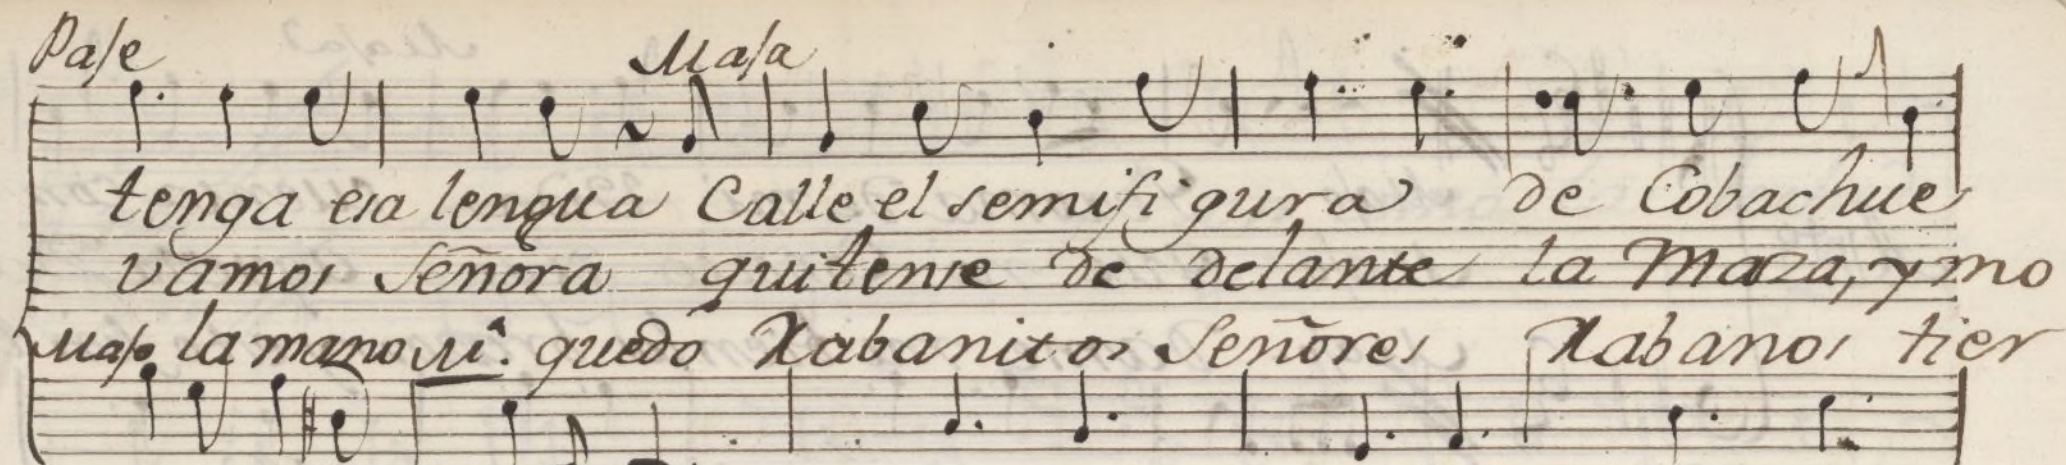 Pase Masa
tenga esa lengua Calle el semifigura de Cobachue
vamos Señora quitense de delante la Maza, y mo
Maso la mano M.ª quedo Rabanitos Señores Rabanos tier